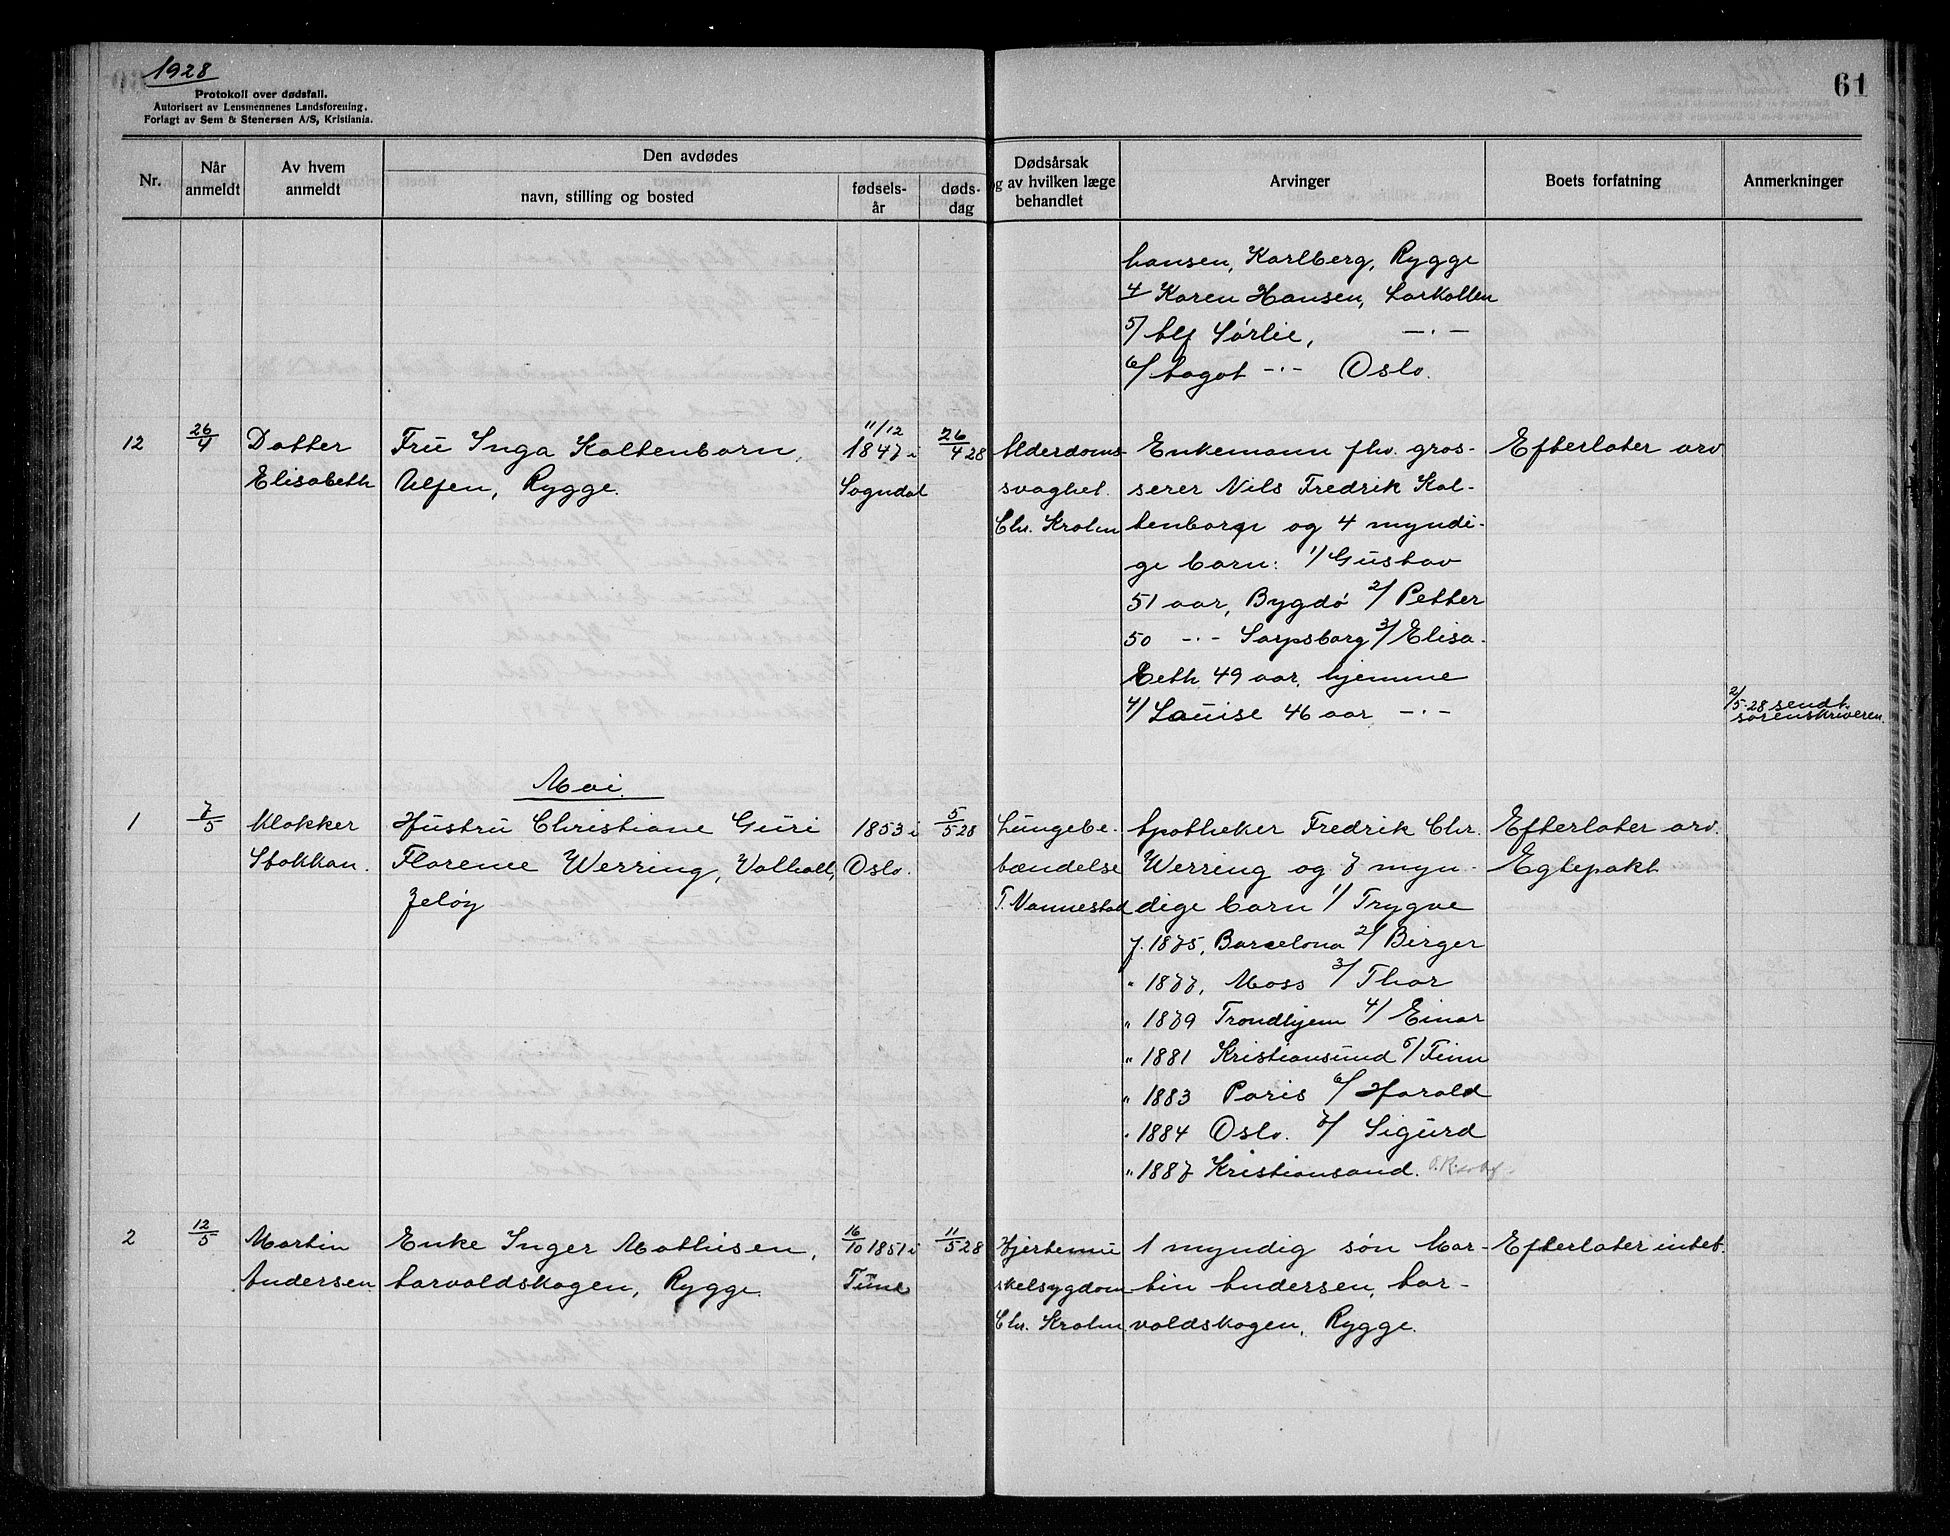 1928
Protokoll over dødsfall.
Autorisert av Lensmennenes Landsforening.
Forlagt av Sem & Stenersen A/S, Kristiania.
61
Nr.
Når anmeldt
Av hvem anmeldt
Den avdødes
navn, stilling og bosted
fødsels-år
døds-dag
Dødsårsak
og av hvilken læge
behandlet
Arvinger
Boets forfatning
Anmerkninger
hansen, Karlberg, Rygge
4/ Karen Hansen, Larkollen
5/ Alf Sørlie, -"-
6/ Aagot -"- Oslo.
12
26/4
Datter
Elisabeth
Fru Inga Kaltenborn,
Ulfen, Rygge.
11/12
1847 i
Sogndal
26/4 28
Alderdoms-
svaghet.
Chr. Krohn
Enkemann fhv. gros-
serer Nils Fredrik Kal-
tenborn og 4 myndi-
ge barn: 1/ Gustav
51 aar, Bygdö 2/ Petter
50 -"- Sarpsborg 3/ Elisa-
beth 49 aar, hjemme
4/ Louise 46 aar -"-
Efterlater arv
2/5-28 sendt
sorenskriveren.
Mai.
1
7/5
Klokker
Stokkan.
Hustru Christiane Guri
Florence Werring, Valhall,
Jeløy
1853 i
Oslo.
5/5 28
Lungebe-
tændelse
T. Vannestad
Apotheker Fredrik Chr.
Werring og 7 myn-
dige barn 1/ Trygve
f. 1875, Barcelona 2/ Birger
" 1877, Moss 3/ Thor
" 1879 Trondhjem 4/ Einar
" 1881 Kristiansund 5/ Finn
" 1883 Paris 6/ Harald
" 1884 Oslo. 7/ Sigurd
" 1887 Kristiansand.
Efterlater arv.
Egtepakt
2
12/5
Martin
Andersen
Enke Inger Mathisen,
Carvaldskogen, Rygge.
16/10 1851 i
Tune
11/5 28
Hjertemu
skelsygdom
Chr. Krohn.
1 myndig søn Mar-
tin Andersen, Car-
valdskogen, Rygge.
Efterlater intet.